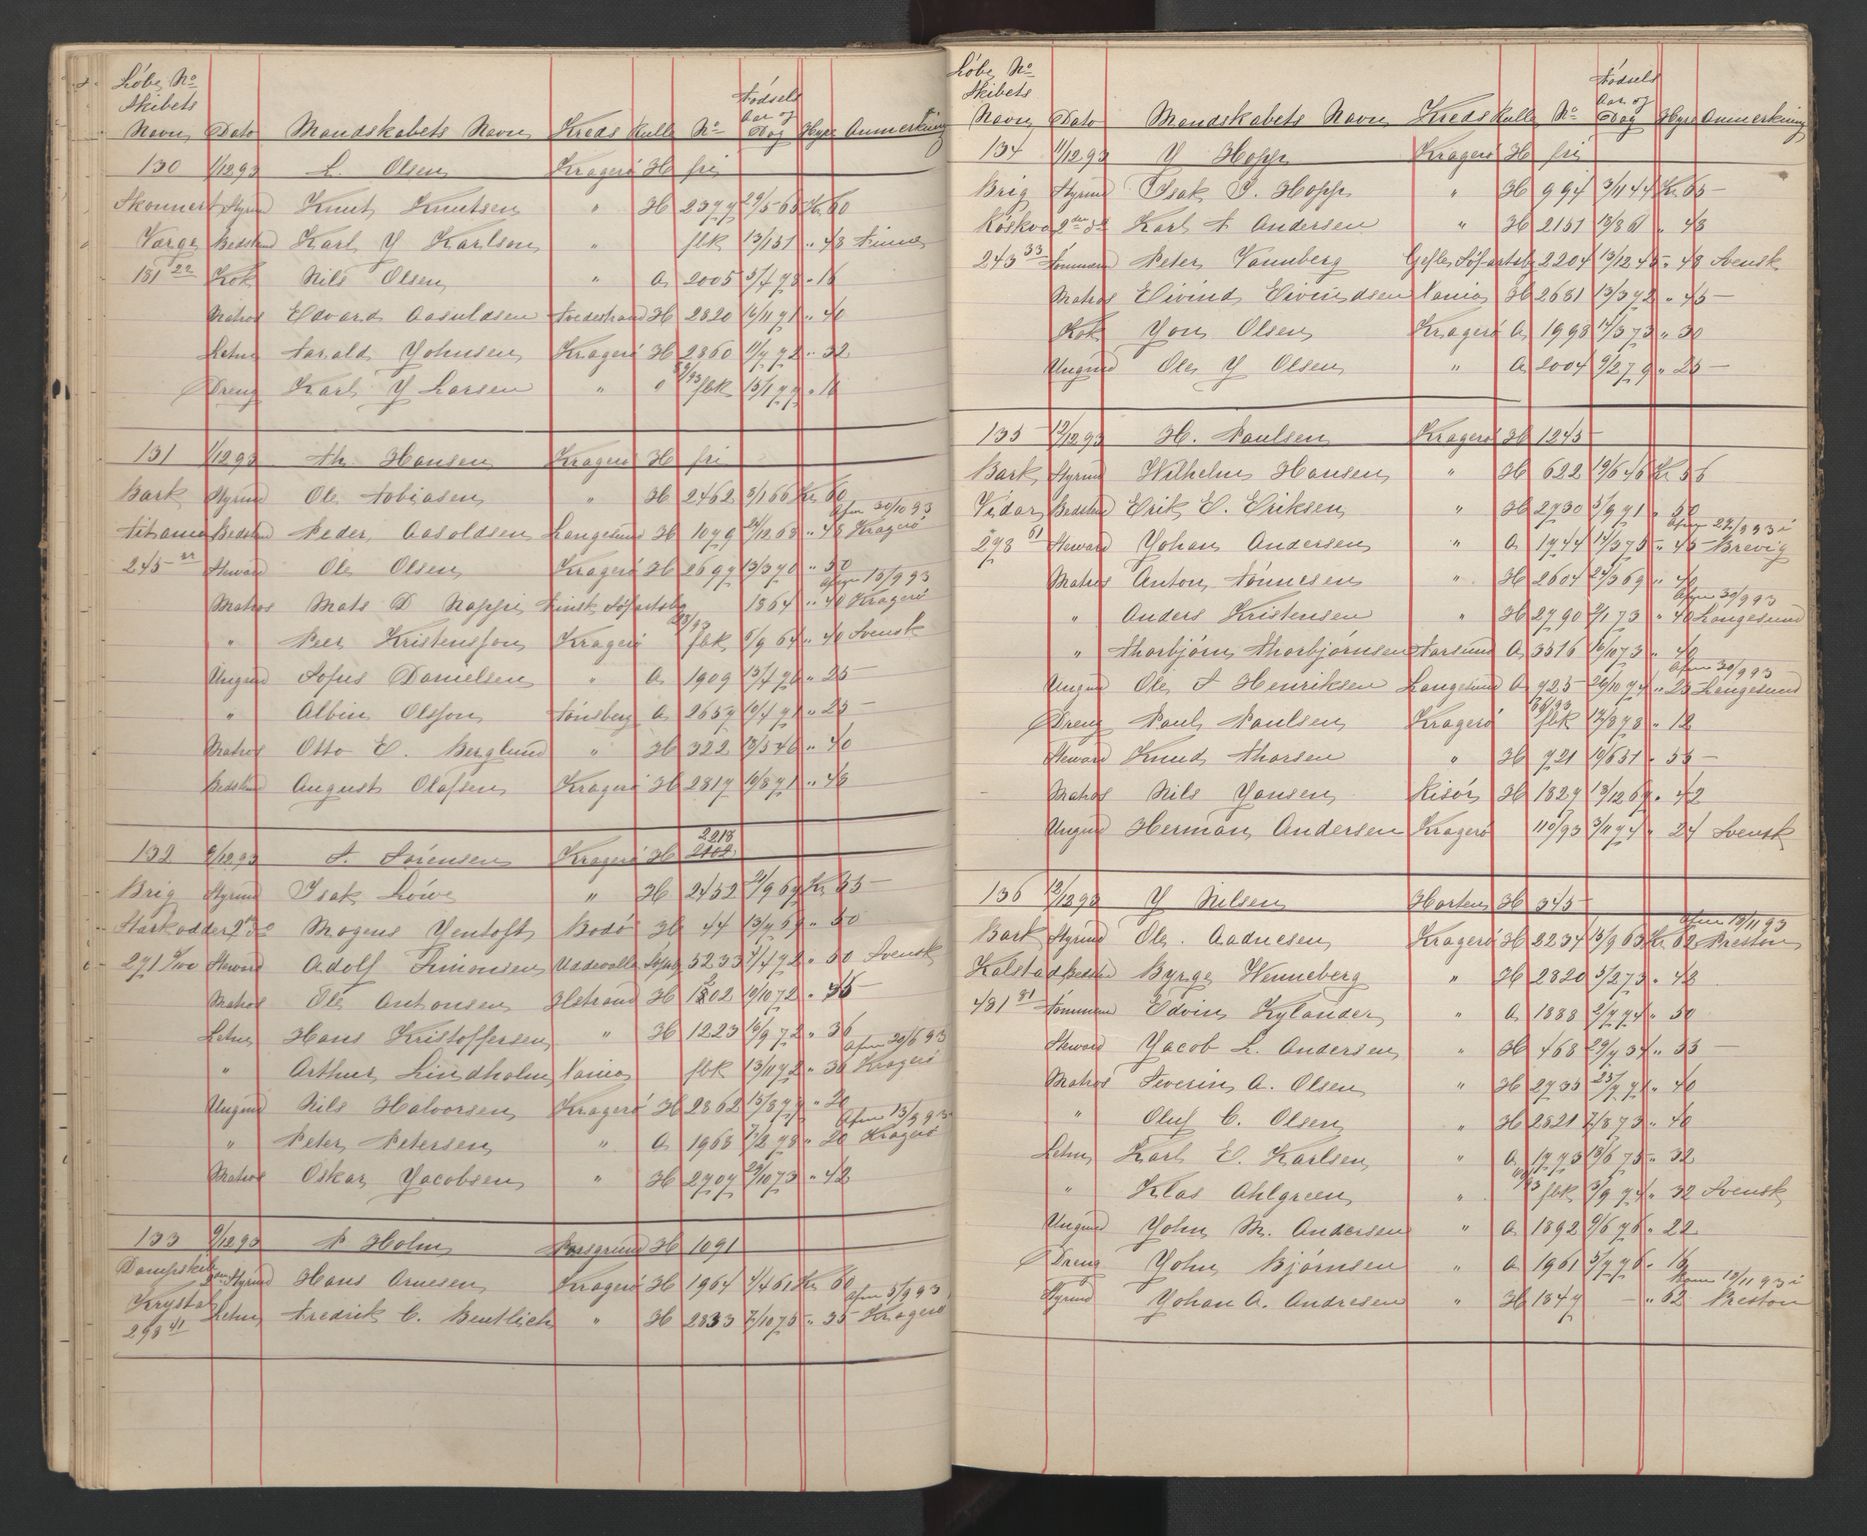 Løbe No
Skibets Navn Dato Mandskabets Navn Kreds Rulle No Fødsels Aar og Dag Hyre Anmerkning
130 1/12 93 L. Olsen Kragerø H fri
Skonnert Styrmd Knut Knutsen " H 2377 29/5 65 Kr. 60
Varge Bedstmd Karl J Karlson " fbk 13/1 51 " 48 Finne
181 22 Kok Nils Olsen " A 2005 5/4 78 " 16
Matros Edvard Aasuldsen Tvedestrand H 2820 16/11 71 " 40
Letm Tarald Johnsen Kragerø H 2860 11/7 72 " 32
Dreng Karl J Larsen " " 59/93 fbk 13/1 77 " 16
131 1/12 93 Th. Hansen Kragerø H fri
Bark Styrmd Ole Tobiasen " H 2462 3/1 66 Kr 60
Titania Bedstmd Peder Aasoldsen Langesund H 1079 24/12 68 " 48 Afm 30/10 93 Kragerø
245 Steward Ole Olsen Kragerø H 2697 13/3 70 " 50
Matros Mats D Nappi Finsk Søfartsbg 1864 " 40 Afm 15/9 93 Kragerø
" Peer Kristensson Kragerø fbk 6/9 64 " 40 Svensk
Ungmd Sofus Danielsen " A 1909 13/4 76 " 25 —
" Albin Olsson Tønsberg A 2657 10/4 71 " 25 —
Matros Otto E. Berglund " H 322 13/5 46 " 40
Bedstmd August Olafsen Kragerø H 2817 10/8 71 " 48
132 9/12 93 S. Sørensen Kragerø H 2218
Brig Styrmd Isak Løwe " H 2452 21/9 67 Kr 55 —
Starkodder 2den do Mogens Jentoft Bodø H 44 13/4 69 " 50
271 1/00 Steward Adolf Simonsen Uddevalla Søfartsbg 5233 7/4 72 " 50 Svensk
Matros Ole Antonsen Hlstrand H 1202 10/10 72 " 36
Letm Hans Kristoffersen " H 1223 16/9 72 " 36
" Arthur Lindholm Vania fbk 13/11 72 " 36 Afm 20/6 93 Kragerø
Ungmd Nils Halvorsen Kragerø H 2862 15/8 77 " 20
" Peter Petersen " A 1968 7/2 78 " 20 Afm 13/8 93 Kragerø
Matros Oskar Jacobsen " H 2707 29/10 73 " 42
133 9/12 93 P Holm Porsgrund H 1091
Dampskib Styrmd Hans Arnesen Kragerø H 1964 1/4 61 Kr 60
Krystal Letm Fredrik C. Bentlich " H 2833 7/10 75 " 35 Afm 5/9 93 Kragerø
298 41
Løbe No
Skibets Navn Dato Mandskabets Navn Kreds Rulle No Fødsels Aar og Dag Hyre Anmerkning
134 11/12 93 J Hopp Kragerø H fri
Brig Styrmd Isak I. Hopp " H 994 3/11 44 Kr. 65 —
Røskva 2den do Karl A Andersen " H 2151 19/8 61 " 48
243 33 Tømmerm Peter Vannberg Gefles Søfartsbg 2204 13/12 45 " 48 Svensk
Matros Eivind Eivindsen Vania H 2681 13/3 72 " 45 —
Kok Jon Olsen Kragerø A 1998 14/3 73 " 30
Ungmd Ole J Olsen " A 2004 9/2 79 " 25 —
135 12/12 93 H. Paulsen Kragerø H 1245
Bark Styrmd Wilhelm Hansen " H 622 19/6 46 Kr 56
Vidar Bedstmd Erik E. Eriksen " H 2730 5/9 71 " 50
278 61 Steward Johan Andersen " A 1744 14/3 75 " 45 Afm 22/8 93 i Brevig
Matros Anton Tønnesen " H 2604 24/3 69 " 40
" Anders Kristensen " H 2790 2/1 73 " 40 Afm 30/9 93 Langesund
" Thorbjørn Thorbjørnsen Farsund A 3516 16/10 73 " 40
Ungmd Ole A Henriksen Langesund A 925 26/10 74 " 25 Afm 30/9 93 Langesund
Dreng Paul Paulsen Kragerø fbk 12/8 78 " 12
Steward Knud Thorsen " H 721 10/6 51 " 55 —
Matros Nils Jansen Risør H 1827 13/12 67 " 42
Ungmd Herman Andersen Kragerø 110/93 3/11 74 " 24 Svensk
136 12/12 93 J Nilsen Horten H 345
Bark Styrmd Ole Aadnesen Kragerø H 2234 13/9 63 Kr 62 Afm 13/11 93 Preston
Kalstad Bedstmd Byrge Wenneberg " H 2820 5/2 73 " 42
481 81 Tømmerm Edvin Kylander " A 1888 2/7 74 " 50
Steward Jacob L. Andersen " H 468 29/7 34 " 55 —
Matros Severin A. Olsen " H 2735 25/7 71 " 40
" Oluf C. Olsen " H 2821 7/8 73 " 40
Letm Karl E. Karlsen " A 1773 13/6 75 " 32
" Klas Ahlgreen " fbk 3/9 74 " 32 Svensk
Ungmd John M. Andersen " A 1892 9/6 76 " 22
Dreng John Bjørnsen " A 1961 5/7 76 " 16
Styrmd Johan A. Andresen " H 1847 — " 62 Paam 13/11 93 i Preston